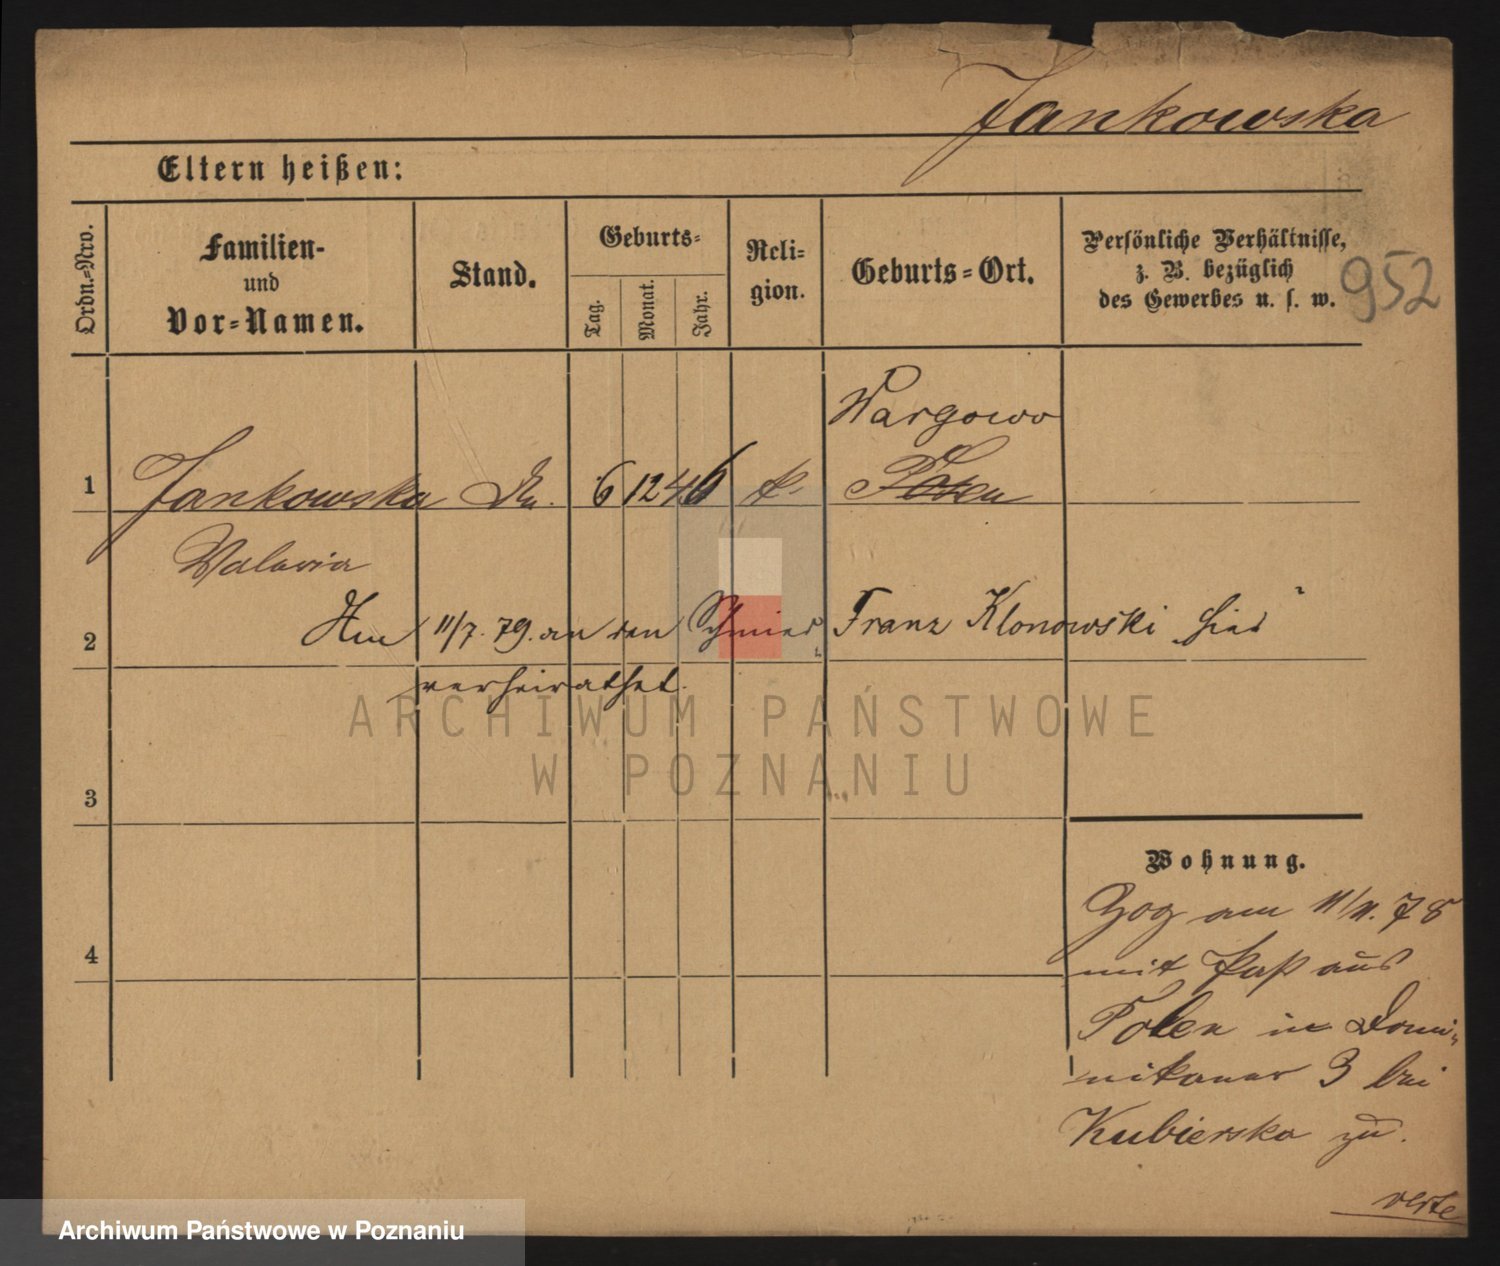 Jankowska
Eltern heißen:
Ordn.-Nro.
Familien-
und
Vor-Namen.
Stand.
Geburts-
Tag.
Monat.
Jahr.
Reli-
gion.
Geburts-Ort.
Persönliche Verhältnisse,
z. B. bezüglich
des Gewerbes u. s. w.
952
Wargowo
1 Jankowska 6 12 46 k. Posen
Valeria
2 11/7. 79. an den Schmied Franz Klonowski hier
verheirathet.
ARCHIWUM PAŃSTWOWE
W POZNANIU
3
Wohnung.
4
Zog am 11/11. 78
mit Paß aus
Polen in Domi-
nikaner 3 bei
Kubierska zu.
verte
Archiwum Państwowe w Poznaniu